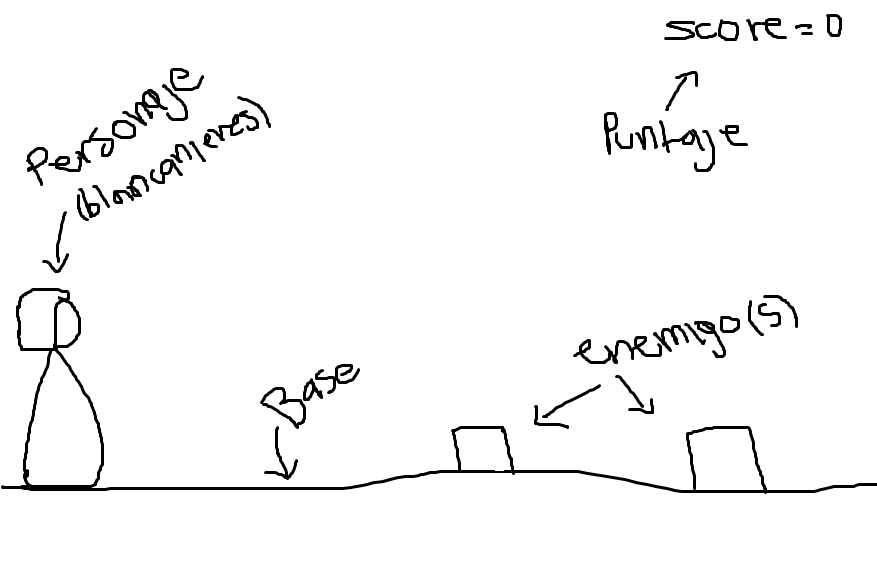 score = 0
Puntaje
Personaje
(blancanieves)
enemigo(s)
Base